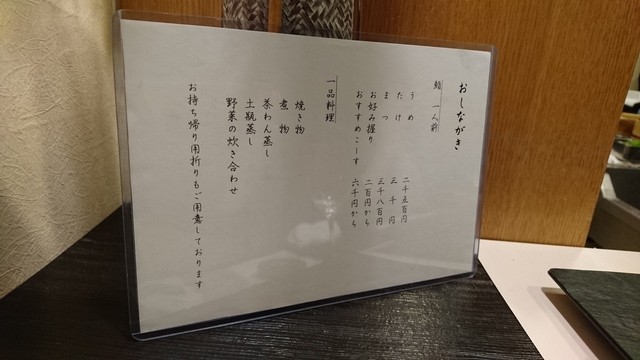 おしながき
鮨 一人前
うめ 二千五百円
たけ 三千円
まつ 三千八百円
お好み握り 二百円から
おすすめこーす 六千円から
一品料理
焼き物
煮物
茶わん蒸し
土瓶蒸し
野菜の炊き合わせ
お持ち帰り用折りもご用意しております